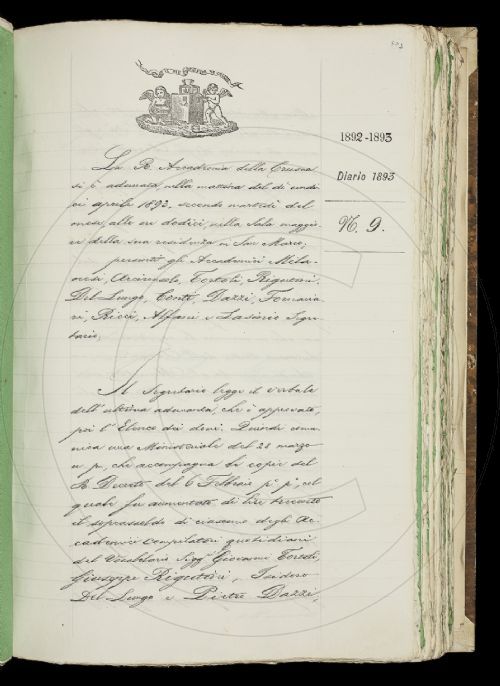 1892-1893
Diario 1893
N. 9.
La R. Accademia della Crusca
si è adunata nella mattina del dì undi
ci aprile 1893, secondo martedì del
mese, alle ore dodici, nella Sala maggio
re della sua residenza in San Marco,
presenti gli Accademici Mila-
nesi, Arcivescovo, Tortoli, Rigutini,
Del Lungo, Conti, Dazzi, Fornacia-
ri, Ricci, Alfani e Lasinio Segre
tario.
Il Segretario legge il verbale
dell'ultima adunanza, che è approvato,
poi l'Elenco dei doni. Quindi comu
nica una Ministeriale del 28 marzo
u. p., che accompagna la copia del
R. Decreto del 6 Febbraio p.º p.º, col
quale fu aumentato di lire trecento
il soprassoldo di ciascuno degli Ac-
cademici compilatori quotidiani
del Vocabolario Sigg.ri Giovanni Tortoli,
Giuseppe Rigutini, Isidoro
Del Lungo e Pietro Dazzi,